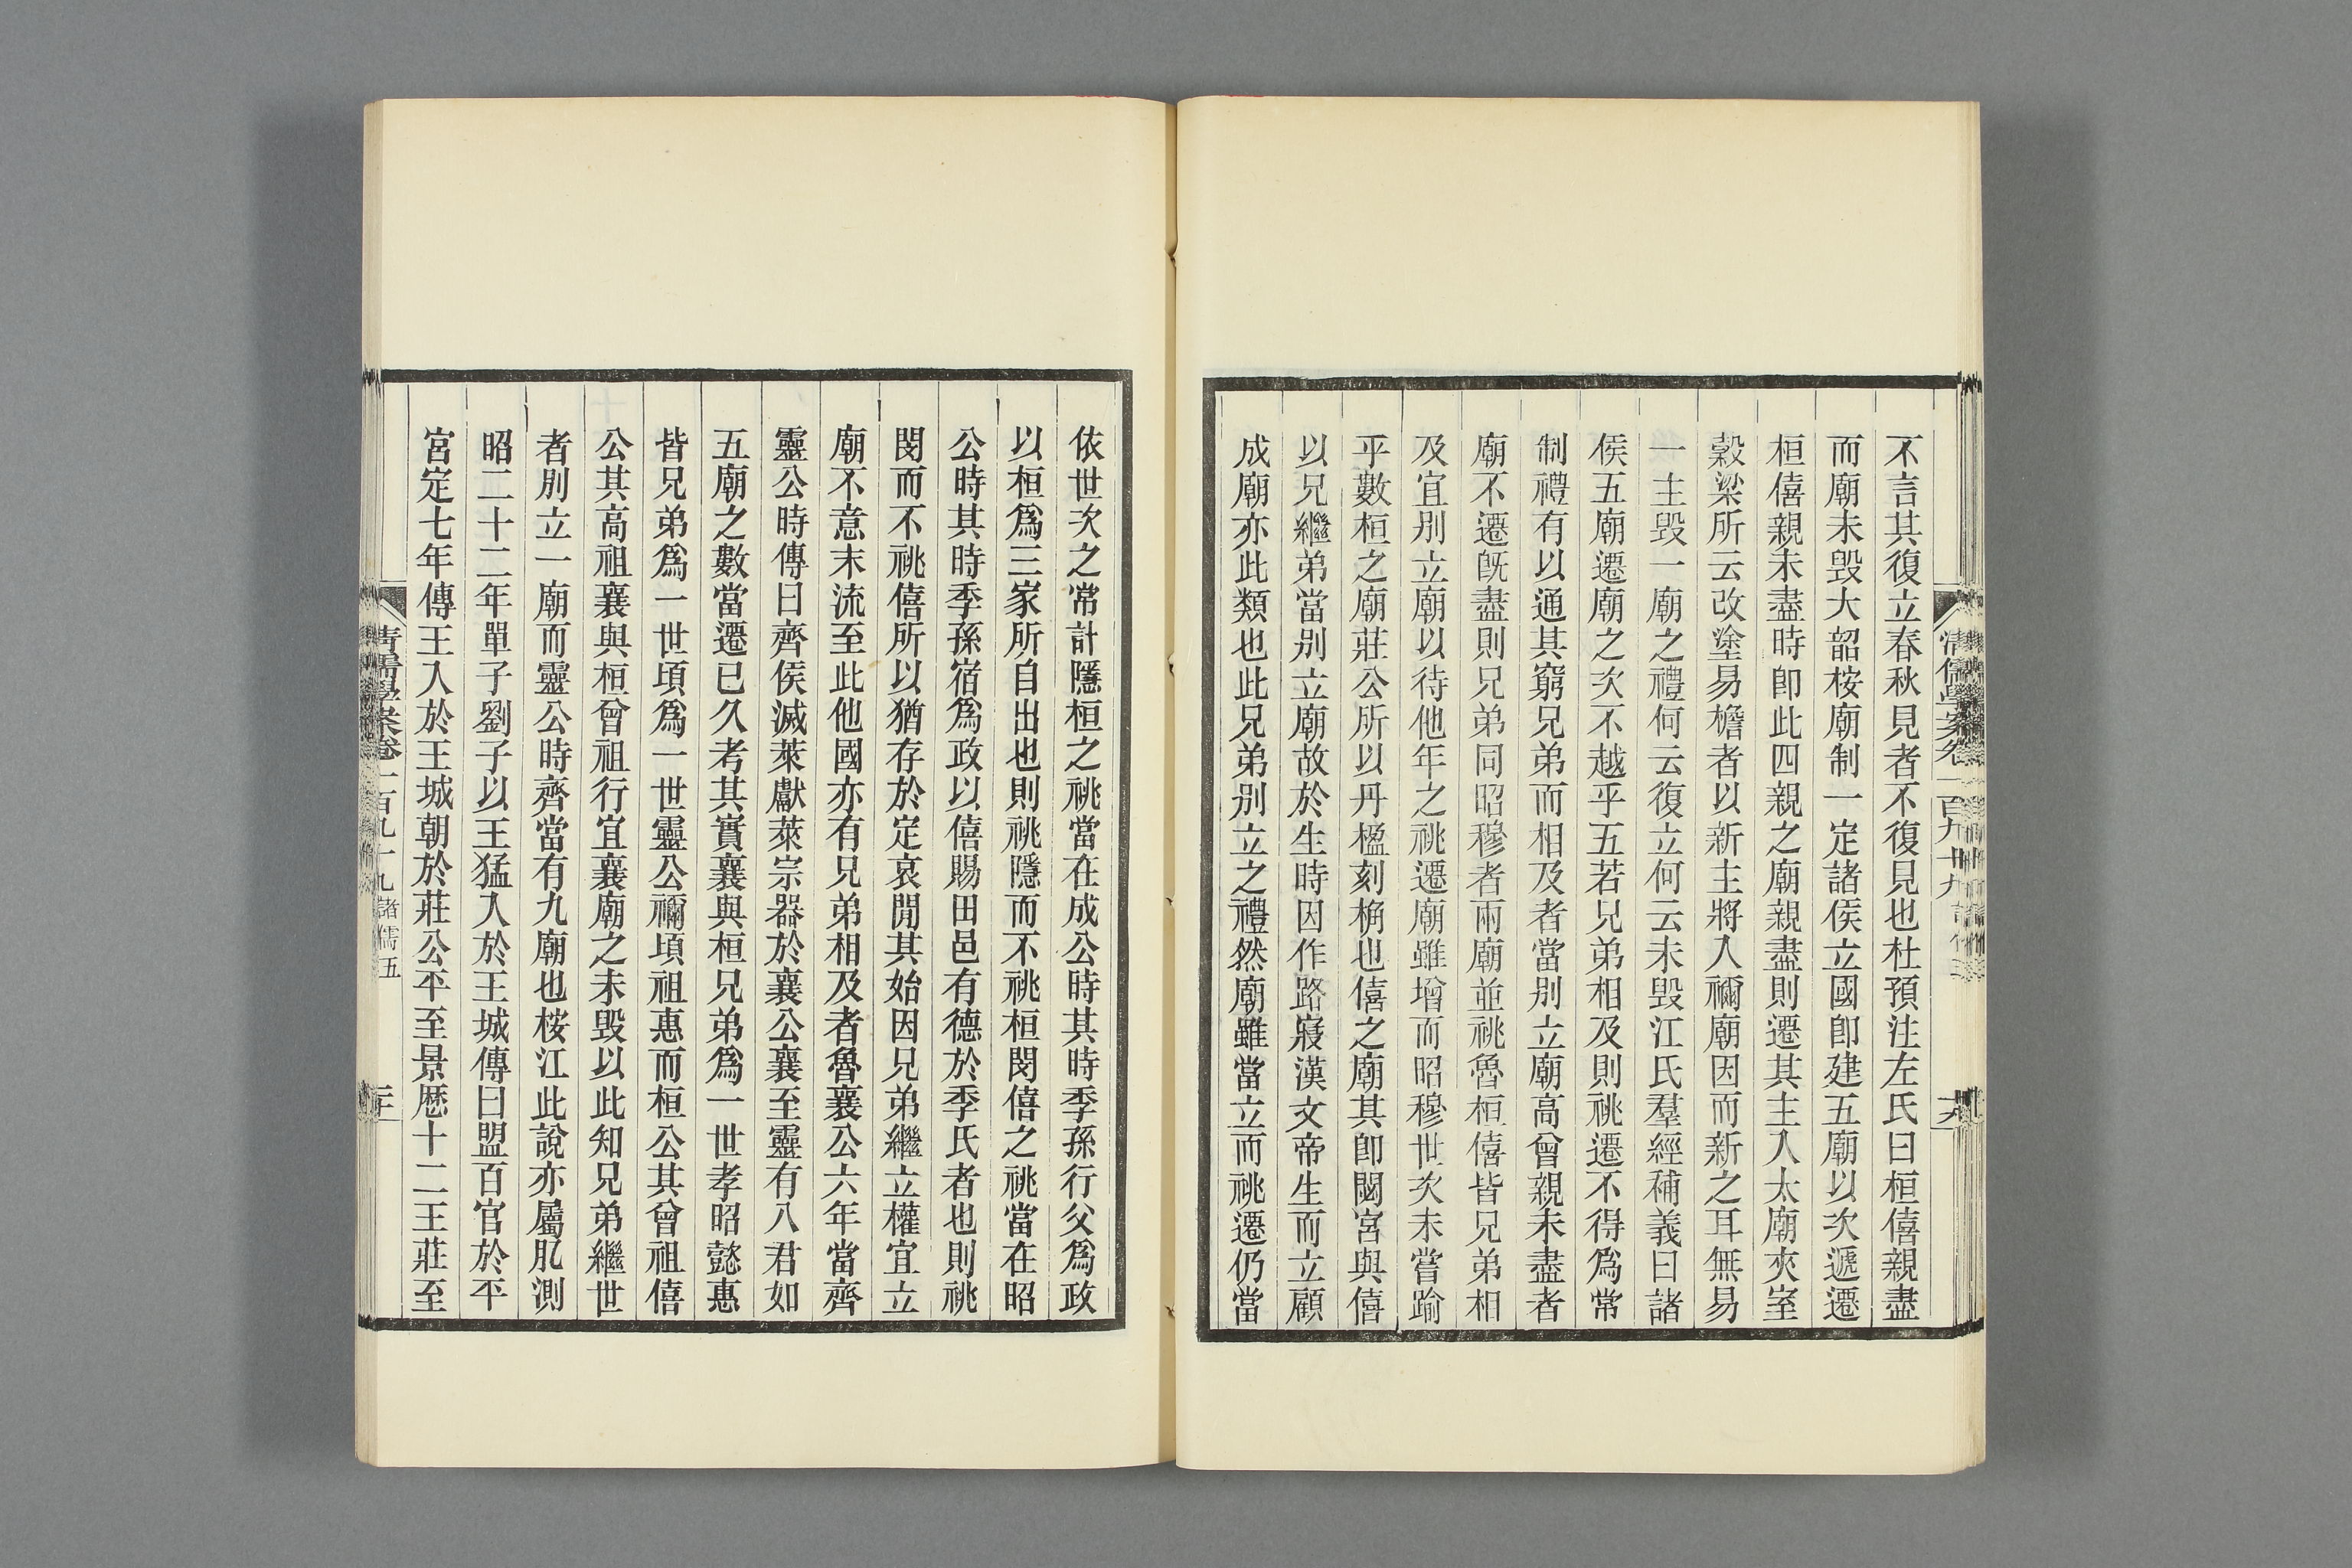 不言其復立春秋見者不復見也杜預注左氏曰桓僖親盡
而廟未毀大韶桉廟制一定諸侯立國卽建五廟以次遞遷
桓僖親未盡時卽此四親之廟親盡則遷其主入太廟夾室
穀梁所云改塗易檐者以新主將入禰廟因而新之耳無易
一主毀一廟之禮何云復立何云未毀江氏羣經補義曰諸
侯五廟遷廟之次不越乎五若兄弟相及則祧遷不得爲常
制禮有以通其窮兄弟而相及者當別立廟高曾親未盡者
廟不遷旣盡則兄弟同昭穆者兩廟並祧魯桓僖皆兄弟相
及宜別立廟以待他年之祧遷廟雖增而昭穆世次未嘗踰
乎數桓之廟莊公所以丹楹刻桷也僖之廟其卽閟宮與僖
以兄繼弟當別立廟故於生時因作路寢漢文帝生而立顧
成廟亦此類也此兄弟別立之禮然廟雖當立而祧遷仍當
依世次之常計隱桓之祧當在成公時其時季孫行父爲政
以桓爲三家所自出也則祧隱而不祧桓閔僖之祧當在昭
公時其時季孫宿爲政以僖賜田邑有德於季氏者也則祧
閔而不祧僖所以猶存於定哀閒其始因兄弟繼立權宜立
廟不意末流至此他國亦有兄弟相及者魯襄公六年當齊
靈公時傳曰齊侯滅萊獻萊宗器於襄公襄至靈有八君如
五廟之數當遷已久考其實襄與桓兄弟爲一世孝昭懿惠
皆兄弟爲一世頃爲一世靈公禰頃祖惠而桓公其曾祖僖
公其高祖襄與桓曾祖行宜襄廟之未毀以此知兄弟繼世
者別立一廟而靈公時齊當有九廟也桉江此說亦屬肊測
昭二十二年單子劉子以王猛入於王城傳曰盟百官於平
宮定七年傳王入於王城朝於莊公平至景歷十二王莊至
清儒學案卷一百九十九 諸儒五